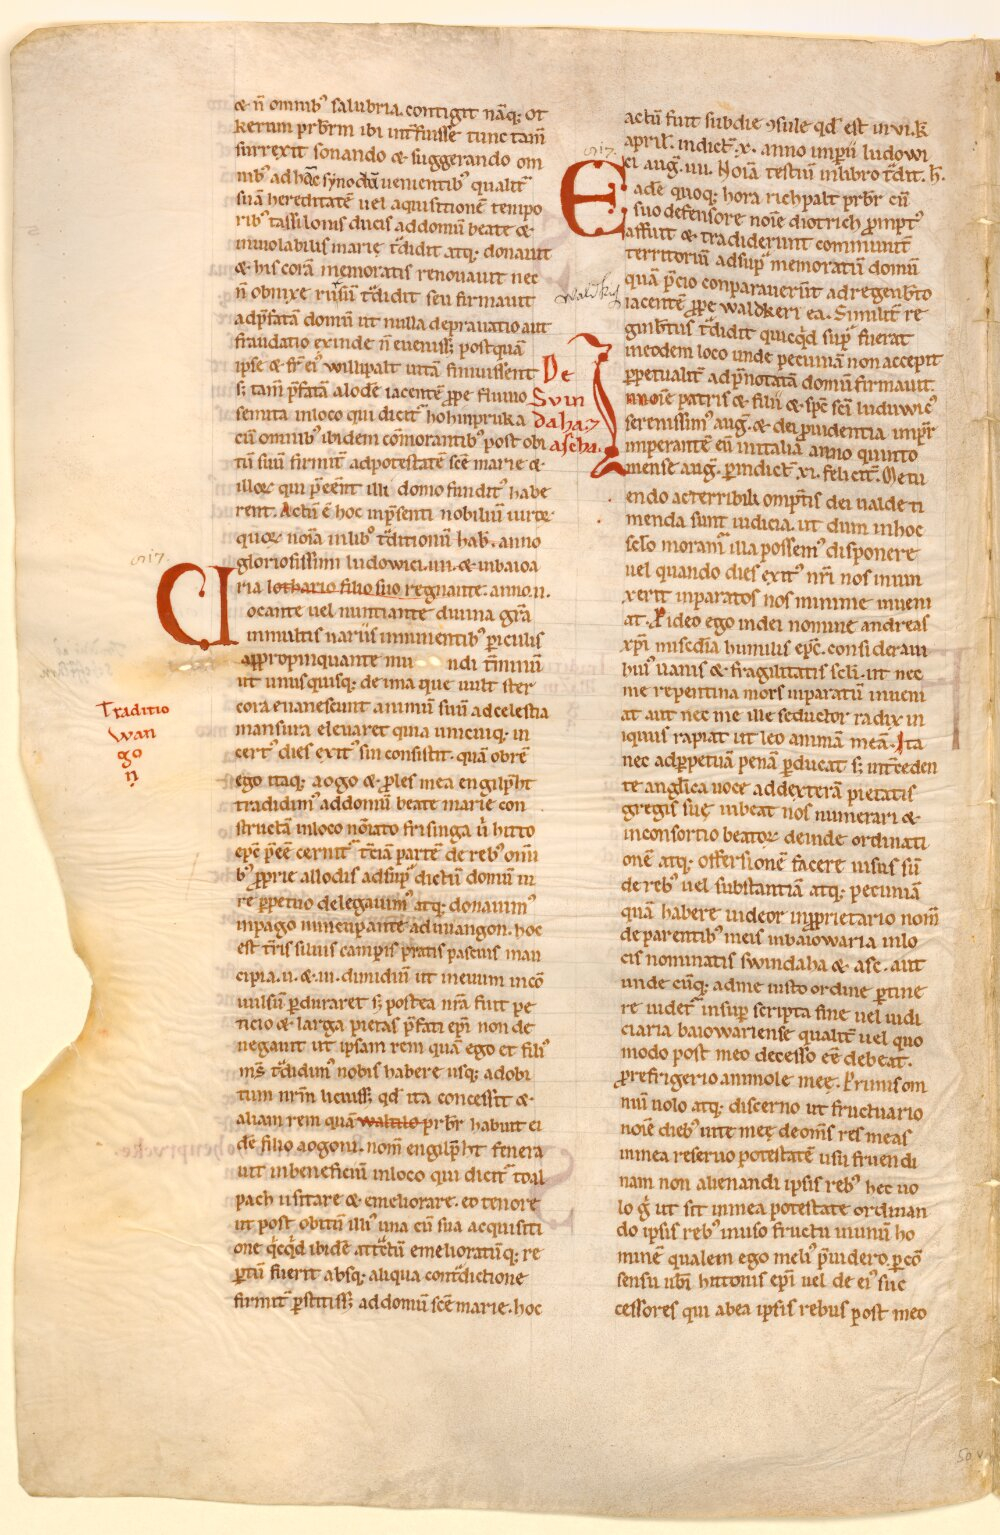 & n̄ omnib᾽ salubria. contigit nāq; ot
kerum prƀrm ibi int̄fuisse tunc tam̄
surrexit sonando & suggerando om
nib᾽ ad hāc synodū uenientib᾽ qualit̄
suā hereditatē uel aquisitionē tempo
rib᾽ tassilonis ducis ad domū beate &
inuiolabilis marię t̄didit atq; donauit
& his corā memoratis renouauit nec
n̄ obnixe rursū t̄didit seu firmauit
ad p̄fatā domū ut nulla deprauatio aut
fraudatio exinde n̄ eueniss; postquā
ipse & fr̄ ei᾽ willipalt uitā finiuissent
s; tam̄ p̄fatā alodē iacentē ꝓpe fluuio
semita in loco qui dicit̄ hohinpruka
cū omnib᾽ ibidem cōmorantib᾽ post obi
tū suū firmit̄ ad potestatē sc̄e marie &
illoꝝ qui p̄eēnt illi domo fundit᾽ habe
rent. Actū ē hoc in p̄senti nobiliū uiroꝝ
quoꝝ noīa in lib᾽ t̄ditionū hab. anno
gloriosissimi ludowici. iiii. & in baioa
ria lothario filio suo regnante. anno. ii.
Uocante uel nuntiante diuina gr̄a
in multis uariis imminentib᾽ periculis
appropinquante mu ndi t̄minū
ut unusquisq; de ima que uult ster
cora euanescunt animū suū ad celestia
mansura eleuaret quia unicuiq; in
cert᾽ dies exit᾽ sin consistit. quā obrē
ego itaq; aogo & ꝓles mea engilp̄ht
tradidim᾽ ad domū beate marie con
structā in loco nōiato frisinga ū hitto
ep̄c p̄eē cernit᾽ t̄ciā partē de reb᾽ om̄i
b᾽ ꝓprie allodis ad sup᾽ dictū domū in
re ꝑpetuo delegauim᾽ atq; donauim᾽
in pago nuncupante ad uuangon. hoc
est t̄ris siluis campis pratis pascuis man
cipia. ii. & .iii. dimidiū ut in euum incō
uulsū ꝑduraret s; postea nr̄a fuit pe
ticio & larga pietas p̄fati ep̄i non de
negauit ut ipsam rem quā ego et fili᾽
m̄s t̄didim᾽ nobis habere usq; ad obi
tum nr̄m licuiss; qd̄ ita concessit &
aliam rem quā waltilo prƀr habuit ei
dē filio aogoni. nom̄ engilp̄ht fenera
uit in beneficiū in loco qui dicit̄ toal
pach usitare & emeliorare. eo tenore
ut post obitū illi᾽ una cū sua acquisiti
one q̄cq̄d ibidē att̄ctū emelioratūq; re
ꝑtū fuerit absq; aliqua cont̄dictione
firmit̄ ꝑstitiss; ad domū sc̄e marie. hoc
S i7.
Traditio
wan
go
n̄
actū fuit sub die ꝯsule qd̄ est in vi. k
april. indict̄. x. anno imꝑii ludowi
ci aug̅. iiii. Noīa testiū in libro t̄dit. h̄.
S i7.
Eadē quoq; hora richpalt prƀr cū
suo defensore noīe diotrich prompt᾽
affuit & tradiderunt communit̄
territoriū ad sup᾽ memoratū domū
quā p̄cio conparauerūt ad regenb̄to
iacentē ꝓpe waldkeri ea. Similit̄ re
ginb̄tus t̄didit quicq̄d sup᾽ fuerat
in eodem loco unde pecuniā non accepit
ꝑpetualit̄ ad p̄notatā domū firmauit.
De
Svin
daha 7
ascha.
In noīe patris & filii & sp̄c sc̄i luduwic᾽
serenissim᾽ aug̅. & dei ꝓuidentia impr̄
imperantē eū in italiā anno quinto
mense aug̅. ꝑ indict̄. xi. felicit̄. Metu
endo ac terribili omp̄tis dei ualde ti
menda sunt iudicia. ut dum in hoc
sc̄lo moram᾽ illa possem᾽ disponere
uel quando dies exit᾽ nr̄i nos inuen
xerit inparatos nos minime inueni
at. Et ideo ego in dei nomine andreas
xp̄i misc̄dia humilis ep̄c. consideraui
hui᾽ uanis & fragilitatis sc̄li. ut nec
me repentina mors inparatū inueni
at aut nec me ille seductor radix in
iquus rapiat ut leo animā meā. Ita
nec ad ꝑpetuā penā ꝑducat s; int̄ceden
te anglica uoce ad dexterā pietatis
gregis suę iubeat nos numerari &
in consortio beatoꝝ deinde ordinati
onē atq; offersionē facere uisus sū
de reb᾽ uel substantiā atq; pecuniā
quā habere uideor in ꝓprietario nom̄
de parentib᾽ meis in baiowaria in lo
cis nominatis swindaha & asc. aut
unde cūq; ad me iusto ordine ꝑtine
re uidet᾽ insup scripta fine uel iudi
ciaria baiowariense qualit̄ uel quo
modo post meo decesso eē debeat.
ꝓ refrigerio animole meę. Primis om
niū uolo atq; discerno ut fructuario
noīe dieb᾽ uite meę de om̄s res meas
in mea reseruo potestatē usu fruendi
nam non alienandi ipsis reb᾽ hec uo
lo g̊ ut sit in mea potestate ordinan
do ipsis reb᾽ in uso fructu in unū ho
minē qualem ego meli᾽ p̄uidero. ꝑ cō
sensu uƀi hittonis ep̄i uel de ei᾽ suc
cessores qui abea ipsis rebus post meo
50 v